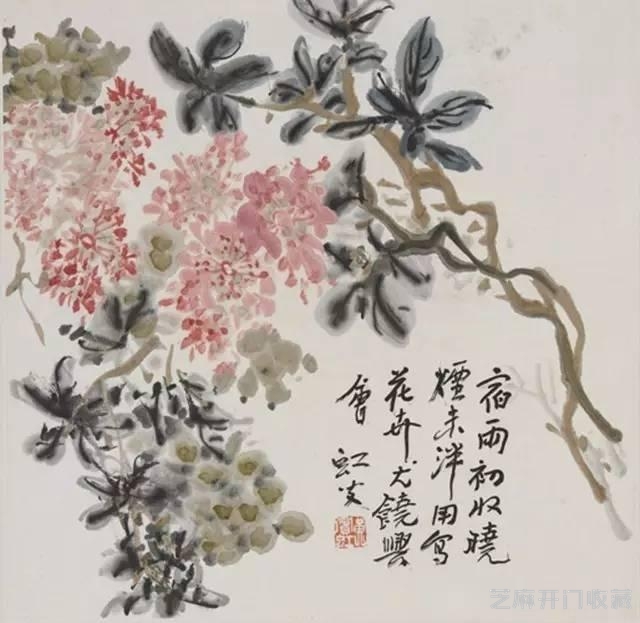 宿雨初收曉
煙未泮用寫
花卉尤饒興
會 虹叟
芝麻开门收藏